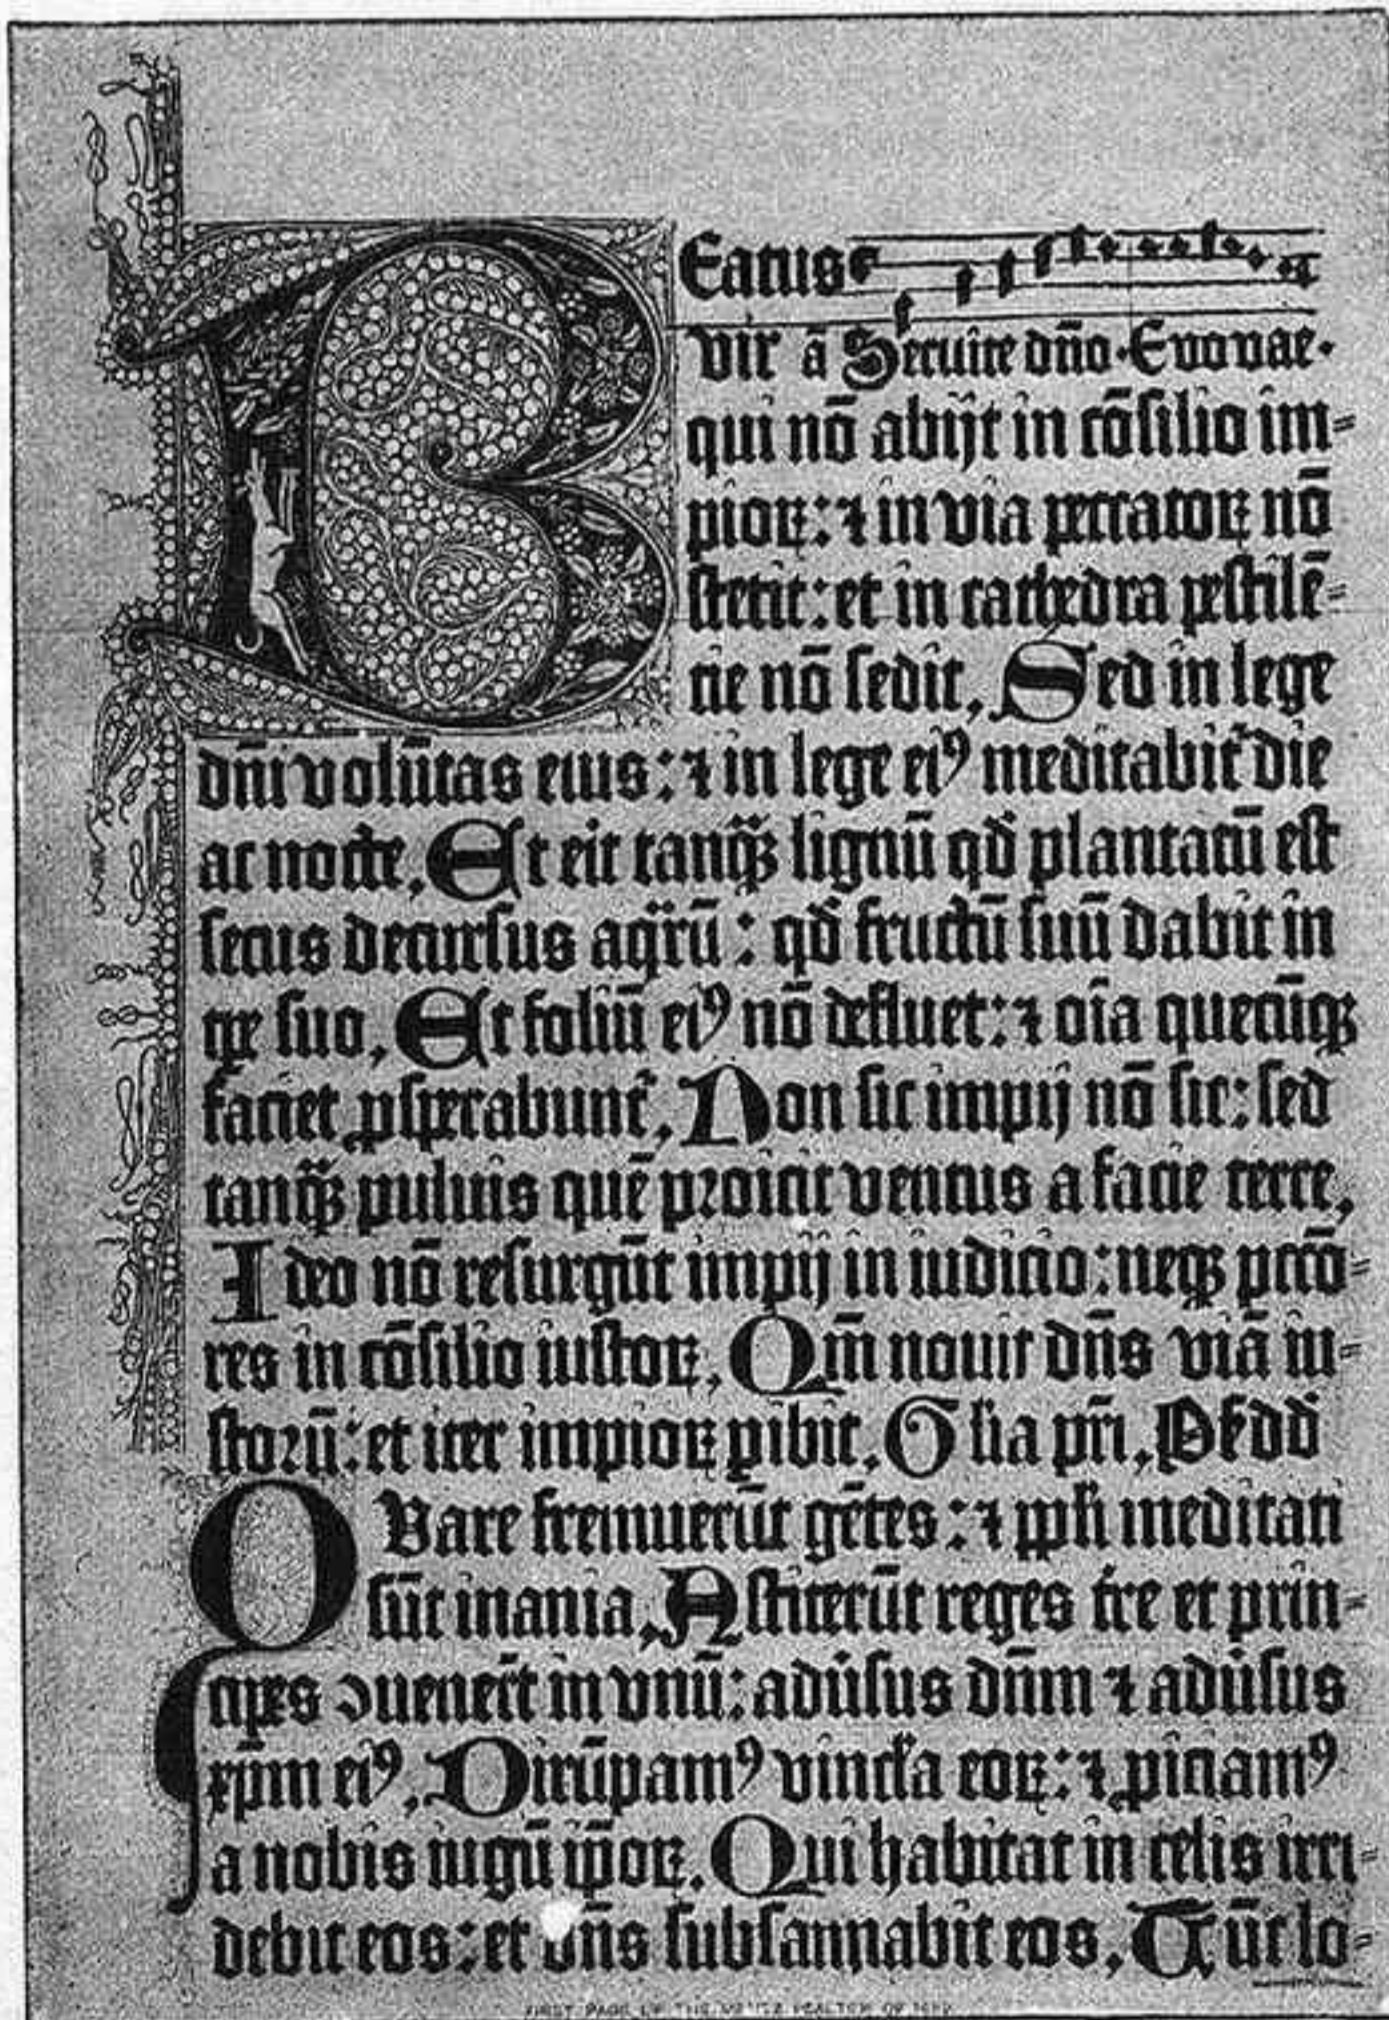 Beatus
vir ā Seruite dño · Evovae ·
qui nō abijt in cōsilio im=
pioꝝ: ⁊ in via peccatoꝝ nō
stetit: et in cathedra pestilē=
cie nō sedit, Sed in lege
dñi volūtas eius: ⁊ in lege ei⁹ meditabit᷑ die
ac nocte, Et eit tanq̃ꝫ lignū qď plantatū est
secus decursus aq̃rū: qď fructū suū dabit in
tꝑe suo, Et foliū ei⁹ nō defluet: ⁊ oīa quecūqꝫ
faciet ꝓsperabunt᷑, Non sic impij nō sic: sed
tanq̃ꝫ puluis quē proicit ventus a facie terre,
Ideo nō resurgūt impij in iudicio: neqꝫ pctō=
res in cōsilio iustoꝝ, Qm̄ nouit dñs viā iu=
storū: et iter impioꝝ ꝑibit, Glia pr̄i, Ps dd
Quare fremuerūt gētes: ⁊ ppłi meditati
sūt inania, Astiterūt reges t̄re et prin=
cipes ↄuener̄t in vnū: adůsus dñm ⁊ adůsus
xp̄m ei⁹, Dirūpam⁹ vincła eoꝝ: ⁊ ꝓiciam⁹
a nobis iugū ip̄oꝝ, Qui habitat in celis irri=
debit eos: et dñs subsannabit eos, Tūt lo=
FIRST PAGE OF THE MENTZ PSALTER OF